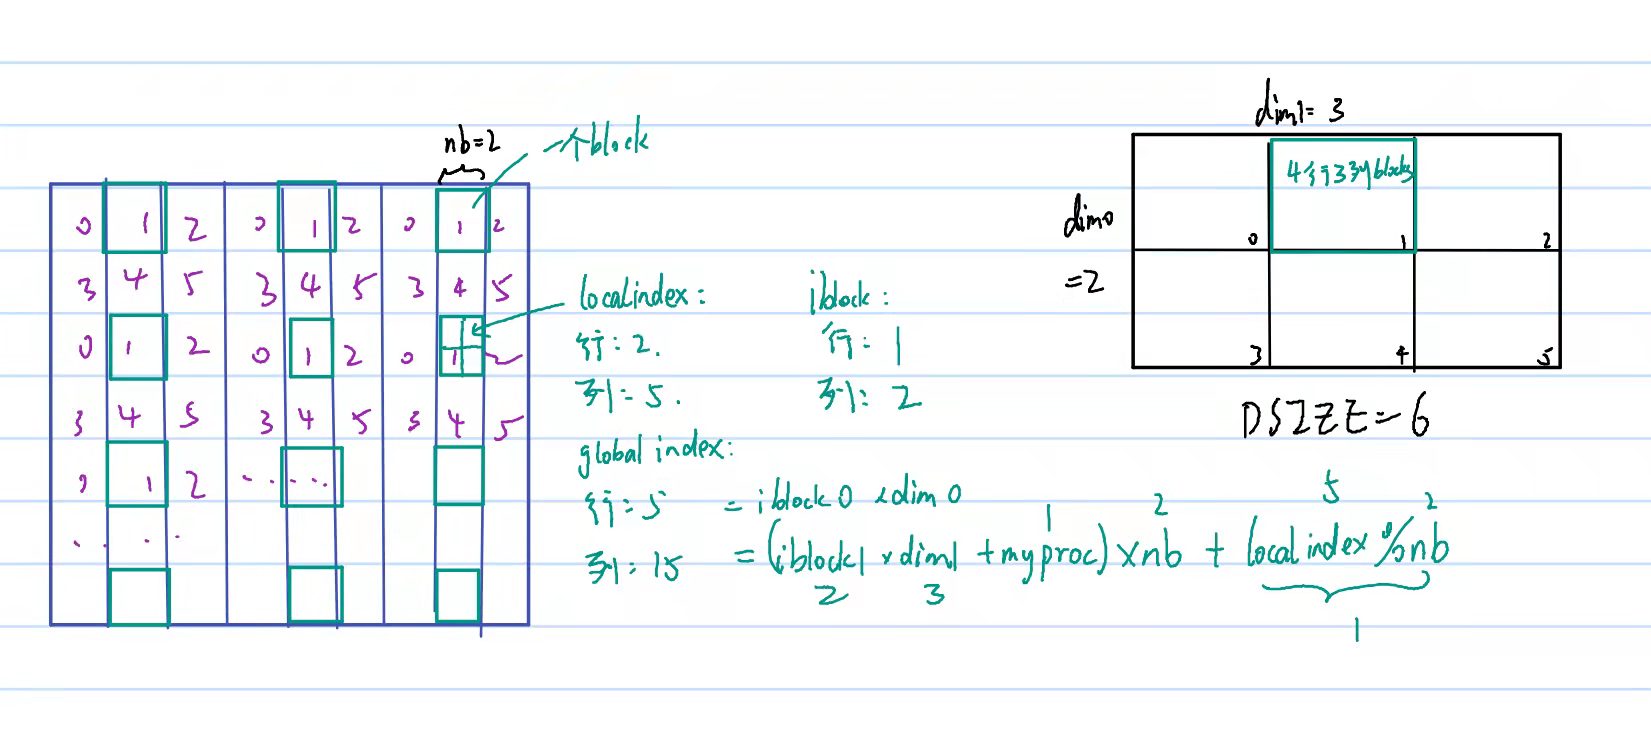 nb=2
一个block
0 1 2 0 1 2 0 1 2
3 4 5 3 4 5 3 4 5
0 1 2 0 1 2 0 1 2
3 4 5 3 4 5 3 4 5
0 1 2 .....
....
localindex:
行:2.
列:5.
iblock:
行:1
列:2
global index:
行:5 = iblock0 x dim0
列:15 = (iblock1 x dim1 + myproc) x nb + (local index % nb
2 3 1 2 5 2
1
dim1= 3
dim0
=2
4行3列blocks
0 1 2
3 4 5
DSIZE=6